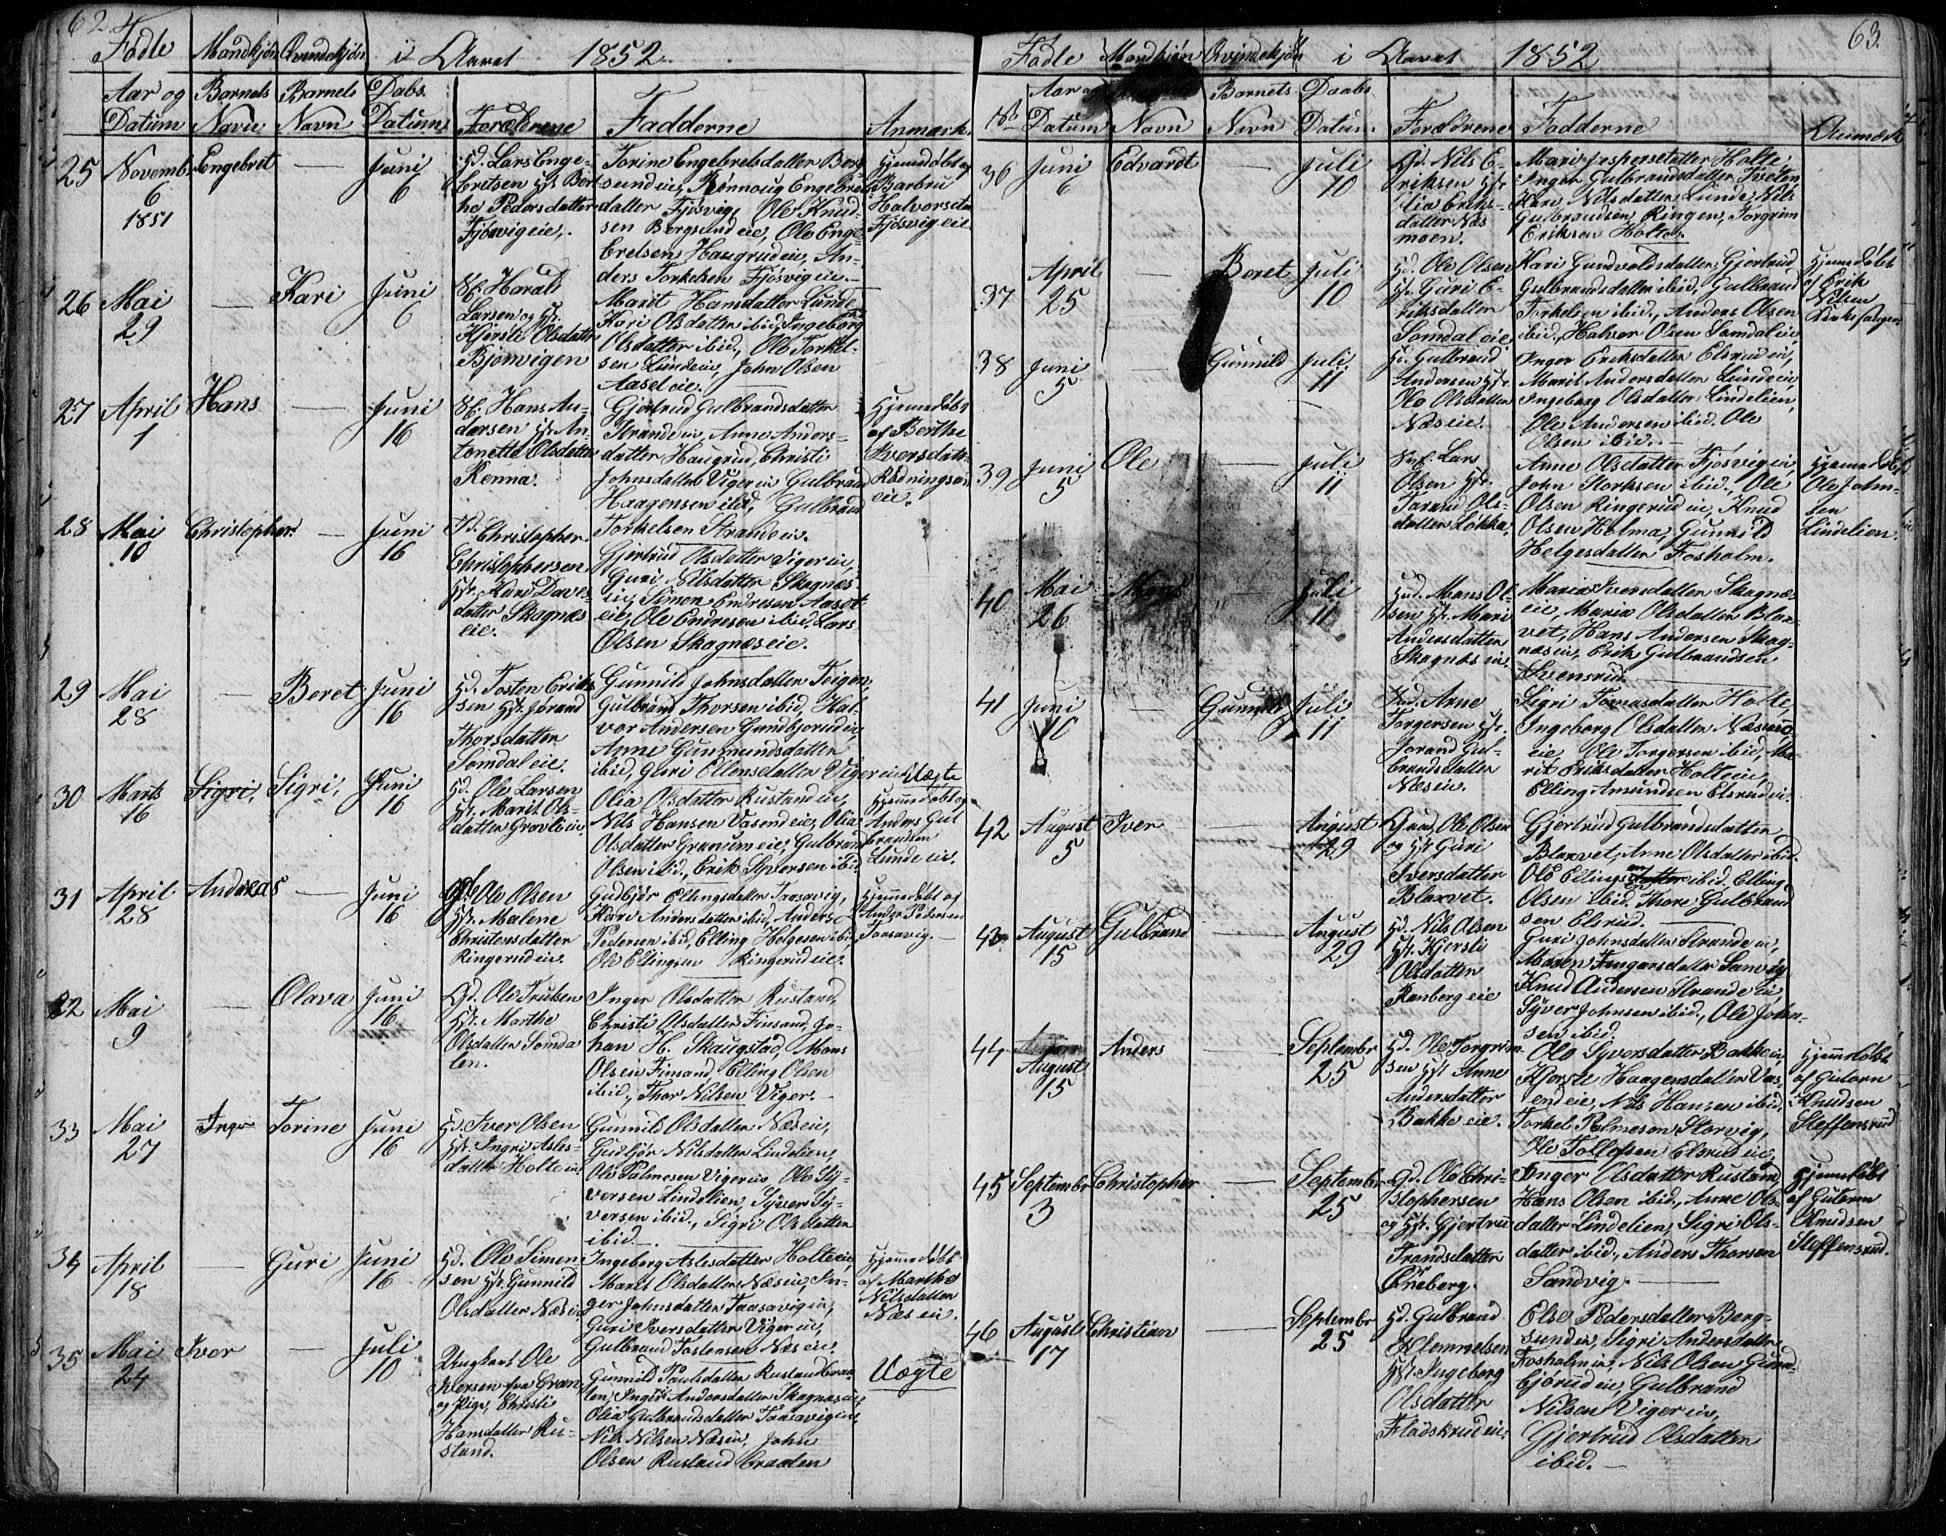 62.
Fødte Mandkjøn Qvindekjøn i Aaret 1852
Aar og Datum
Barnets Navn
Barnets Navn
Daabs Datum
Forældrene
Fadderne
Anmærk.
25
Novemb. 6 1851
Engebret
—
Juni 6
Gd. Lars Enge-
bretsen Hst. Ber-
the Pedersdatter
Fjösvigeie.
Torine Engebretsdatter Berg-
sundeie, Rönnoug Engebrets-
datter Fjösvig, Ole Knud-
sen Bergsundeie, Ole Enge-
bretsen Haugrudeie, An-
ders Torkelsen Fjösvigeie.
Hjemmedøbt af
Barbru
Halvorsdtr
Fjösvigeie
26
Mai 29
—
Kari
Juni 6
Harald
Larsen og Hst.
Kjersti Olsdatter
Bjonvigen
Marit Hansdatter Lunde
Kari Olsdatter ibid, Ingeborg
Olsdatter ibid, Ole Torkel-
sen Lundeeie, John Olsen
Aaseleie.
27
April 1
Hans
—
Juni 16
Hans An-
dersen Hst. An-
tonette Olsdatter
Kenna.
Gjertrud Gulbrandsdatter
Strandeeie, Anne Anders-
datter Haugrud, Christi
Johnsdatter Vigereie, Gulbrand
Haagensen ibid, Gulbrand
Torkelsen Strandeeie.
Hjemmedøbt
af Berthe
Iversdatter
Rödningsand-
eie.
28
Mai 10
Christopher
—
Juni 16
Christopher
Christophersen
Hst. Kari Daves-
datter Skagnæs
eie.
Gjertrud Olsdatter Vigereie,
Guri Nilsdatter Skagnæs
eie, Simon Endresen Aaset
eie, Ole Endresen ibid, Lars
Olsen Skagnæseie.
29
Mai 28
—
Beret
Juni 16
Gd. Tosten Erik-
sen Hst. Jorand
Thorsdatter
Somdaleie.
Gunnild Johnsdatter Teigen,
Gulbrand Thorsen ibid, Hal-
vor Andersen Gundbjørudeie
Anne Gunmundsdatter
ibid, Guri Ellensdatter Vigereie
30
Marts 16
Sigri,
Sigri,
Juni 16
Gd. Ole Larsen
Hst. Marit Ols-
datter Gravlieie
Olia Olsdatter Rustandeie,
Nils Hansen Vasendeie, Olia
Olsdatter Granumeie, Gulbrand
Olsen ibid., Erik Syversen ibid.
Uægte
Hjemmedøbt af
Anders Gul
brandsen
Lundeeie.
31
April 28
Andreas
—
Juni 16
Ole Olsen
Hst. Malene
Christensdatter
Ringerudeie.
Gudbjör Ellingsdatter Traasavig,
Kari Andersdatter ibid, Anders
Pedersen ibid, Elling Helgesen ibid
Ole Ellingsen Ringerudeie.
Hjemmedøbt af
Anders Pedersen
Traasavig.
32
Mai 9
—
Olava
Juni 16
Gd. Ole Trulsen
Hst. Marthe
Olsdatter Somda
len.
Inger Olsdatter Rustand,
Christi Olsdatter Finsand, Jo-
han H. Skaugstad, Mons
Olsen Finsand, Elling Olsen
ibid, Thor Nilsen Viger.
33
Mai 27
Inger
Torine
Juni 16
Gd. Iver Olsen
Hst. Ingri Asles-
datter Holteeie
Gunnild Olsdatter Næseie,
Gudbjör Nilsdatter Lindelien,
Ole Palmesen Vigereie, Ole Sy-
versen Lindelien, Syver Sy-
versen ibid., Sigri Olsdatter
ibid.
34
April 18
—
Guri
Juni 16
Gd. Ole Simen-
sen Hst. Gunnild
Olsdatter Næseie
Ingeborg Aslesdatter Holteeie,
Marit Olsdatter Næseie, In-
ger Johnsdatter Traasavigeie,
Guri Iversdatter Vigereie,
Gulbrand Tostensen Næseie.
Hjemmedøbt
af Marthe
Nilsdatter
Næseie.
35
Mai 24
Iver
—
Juli 10
Ungkarl Ole
Iversen fra Gran
og Pige, Christi
Hansdatter Ru-
stand.
Gunnild Paulsdatter Rustandbraa-
ten, Inger Andersdatter Skagnæseie,
Olia Gulbrandsdatter Traasavigeie,
Nils Nilsen Næseie, John
Olsen Rustandbraaten
Uægte
63.
Fødte Mandkjön Qvindekjön i Aaret 1852
Aar og Datum
Navn
Barnets Navn
Daabs Datum.
Forældrene
Fadderne
Anmærk
36
Juni 6
Edvardt
—
Juli 10
Gd. Nils E-
riksen Hst.
Lia Eriks-
datter Næs
moen.
Mari Jespersdatter Holte,
Inger Gulbrandsdatter Tveten
Kari Nilsdatter Lunde, Nils
Gulbrandsen Ringen, Torgrim
Eriksen Holte.
37
April 25
—
Beret
Juli 10
Gd. Ole Olsen
Hst. Guri E-
riksdatter
Somdaleie.
Kari Gundvoldsdatter, Gjertrud
Gulbrandsdatter ibid, Gulbrand
Torkelsen ibid, Anders Olsen
ibid, Halvor Olsen Somdaleie.
Hjemmedøbt
af Erik
Nilsen
Kirkesanger
38
Juni 5
—
Gunnild
Juli 11
Gd. Gulbrand
Andersen Hst.
Ole Olsdatter
Næseie.
Inger Eriksdatter Elsrudeie,
Marit Andersdatter Lundeeie
Ingeborg Olsdatter Lindelien,
Ole Andersen ibid. Ole
Olsen ibid.
39
Juni 5
Ole
—
Juli 11
Lars
Olsen Hst.
Jorand Ols-
datter Løkka
Anne Olsdatter Fjösvigeie,
John Storksen ibid., Ole
Olsen Ringerudeie, Knud
Olsen Holma, Gunnild
Helgesdatter Fosholm.
Hjemmedøbt
Ole John-
sen
Lindelien.
40
Mai 26
Mons
—
Juli 11
Gd. Mons Ol-
sen Hst. Mari
Andersdatter
Skagnæseie
Maria Iversdatter Skagnæs-
eie, Maria Olsdatter Blaa-
vet, Hans Andersen Skag-
næseie, Erik Gulbrandsen
Svensrud.
41
Juni 10
—
Gunnild
Juli 11
Arne
Torgersen Hst.
Jorand Gul-
brandsdatter
Næseie.
Sigri Tomasdatter Holte,
Ingeborg Olsdatter Næsmo
eie, Ole Torgersen ibid, Ma-
rit Eriksdatter Holteeie,
Elling Amundsen Elsrudeie.
42
August 5
Iver
—
August 29
Gaard. Ole Olsen
og Hst. Guri
Iversdatter
Blaavet.
Gjertrud Gulbrandsdatter
Blaavet, Anne Olsdatter ibid.
Ole Ellingsen ibid. Elling
Olsen ibid. Thore Gulbrand
sen Elsrud.
43
August 15
Gulbrand
—
August 29
Gd. Nils Olsen
Hst. Kjersti
Olsdatter
Ranbergeie
Guri Johnsdatter Strandeeie,
Maren Fingarsdatter Samvig
Knud Andersen Strandeeie,
Syver Johnsen ibid., Ole John-
sen ibid.
44
August 15
Anders
—
Septembr 25
Gd. Ole Torgrim-
sen Hst. Anne
Andersdatter
Bakkeeie.
Ole Syversdatter Bakkeeie,
Kjersti Haagensdatter Vas-
endeie, Nils Hansen ibid,
Torkel Palmesen Storvig,
Ole Tollefsen Elsrudeie,
Hjemmedøbt
af Gutorm
Knudsen
Steffensrud
45
Septembr 3
Christopher
—
Septembr 25
Gd. Ole Chri-
stophersen
og Hst. Gjertrud
Trandsdatter
Öneberg.
Inger Olsdatter Rustand,
Hans Olsen ibid., Anne Ols-
datter Lindelien, Sigri Ols-
datter ibid., Anders Thorsen
Sandvig.
Hjemmedøbt
af Gutorm
Knudsen
Steffensrud.
46
August 17
Christian
—
Septembr 25
Gd. Gulbrand
Klemmetsen
Hst. Ingeborg
Olsdatter
Fladskrudeie,
Olse Pedersdatter Berg-
sundeie, Sigri Andersdatter
Fosholmeie, Nils Olsen Gund-
bjørudeie, Gulbrand
Nilsen Vigereie,
Gjertrud Olsdatter
ibid.